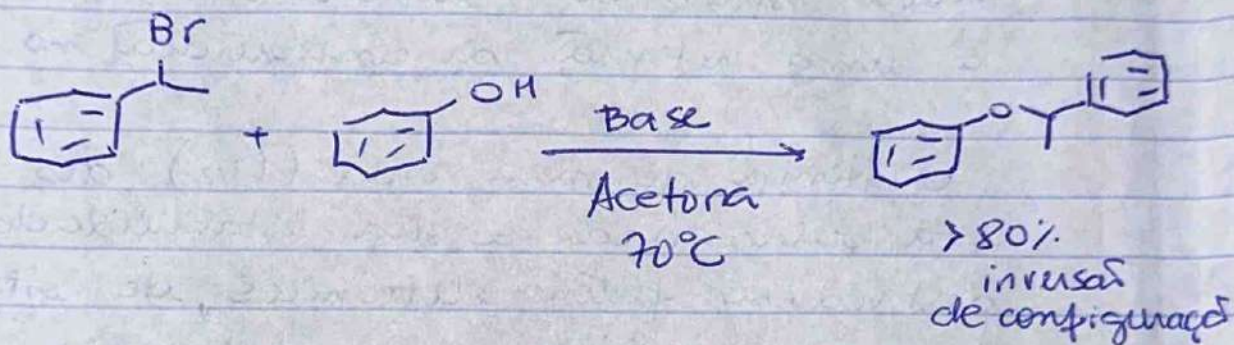 Br
OH
+
Base
O
Acetona
70°C
>80%
inversão
de configuraçã